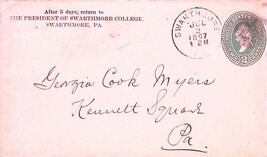 After 5 days, return to
THE PRESIDENT OF SWARTHMORE COLLEGE,
SWARTHMORE, PA.
SWARTHMORE
JUL
2
1 PM
1897
Georgia Cook Myers
Kennett Square
Pa.